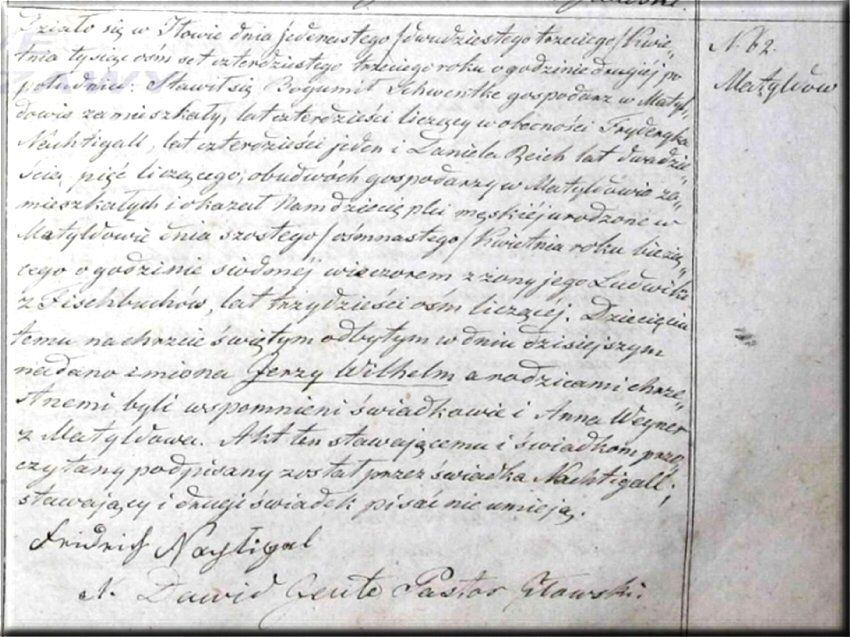 Działo się w Iłowie dnia jedenastego /dwudziestego trzeciego/ Kwie„
tnia tysiąc ośm set czterdziestego trzeciego roku o godzinie drugiéj po
południu. Stawił się Bogumił Schwentke gospodarz w Matyl„
dowie zamieszkały, lat czterdzieści liczący w obecności Fryderyka
Nachtigall, lat czterdzieści jeden i Daniela Reich lat dwadzie„
ścia pięć liczącego, obudwóch gospodarzy w Matyldowie za„
mieszkałych i okazał Nam dziecię płci męskiéj urodzone w
Matyldowie dnia szóstego /ośmnastego/ Kwietnia roku bieżą„
cego o godzinie siódméj wieczorem z żony jego Ludwiki
z Fischbuchów, lat trzydzieści ośm liczącéj. Dziecięciu
temu na chrzcie świętym odbytym w dniu dzisiejszym
nadano imiona Jerzy Wilhelm a rodzicami chrze„
stnemi byli wspomnieni świadkowie i Anna Weyner
z Matyldowa. Akt ten stawającemu i świadkom prze„
czytany podpisany został przez świadka Nachtigall;
stawający i drugi świadek pisać nie umieją.
Fridrich Nachtigal
Dawid Gente Pastor Iłowski.
N. 62.
Matyldów